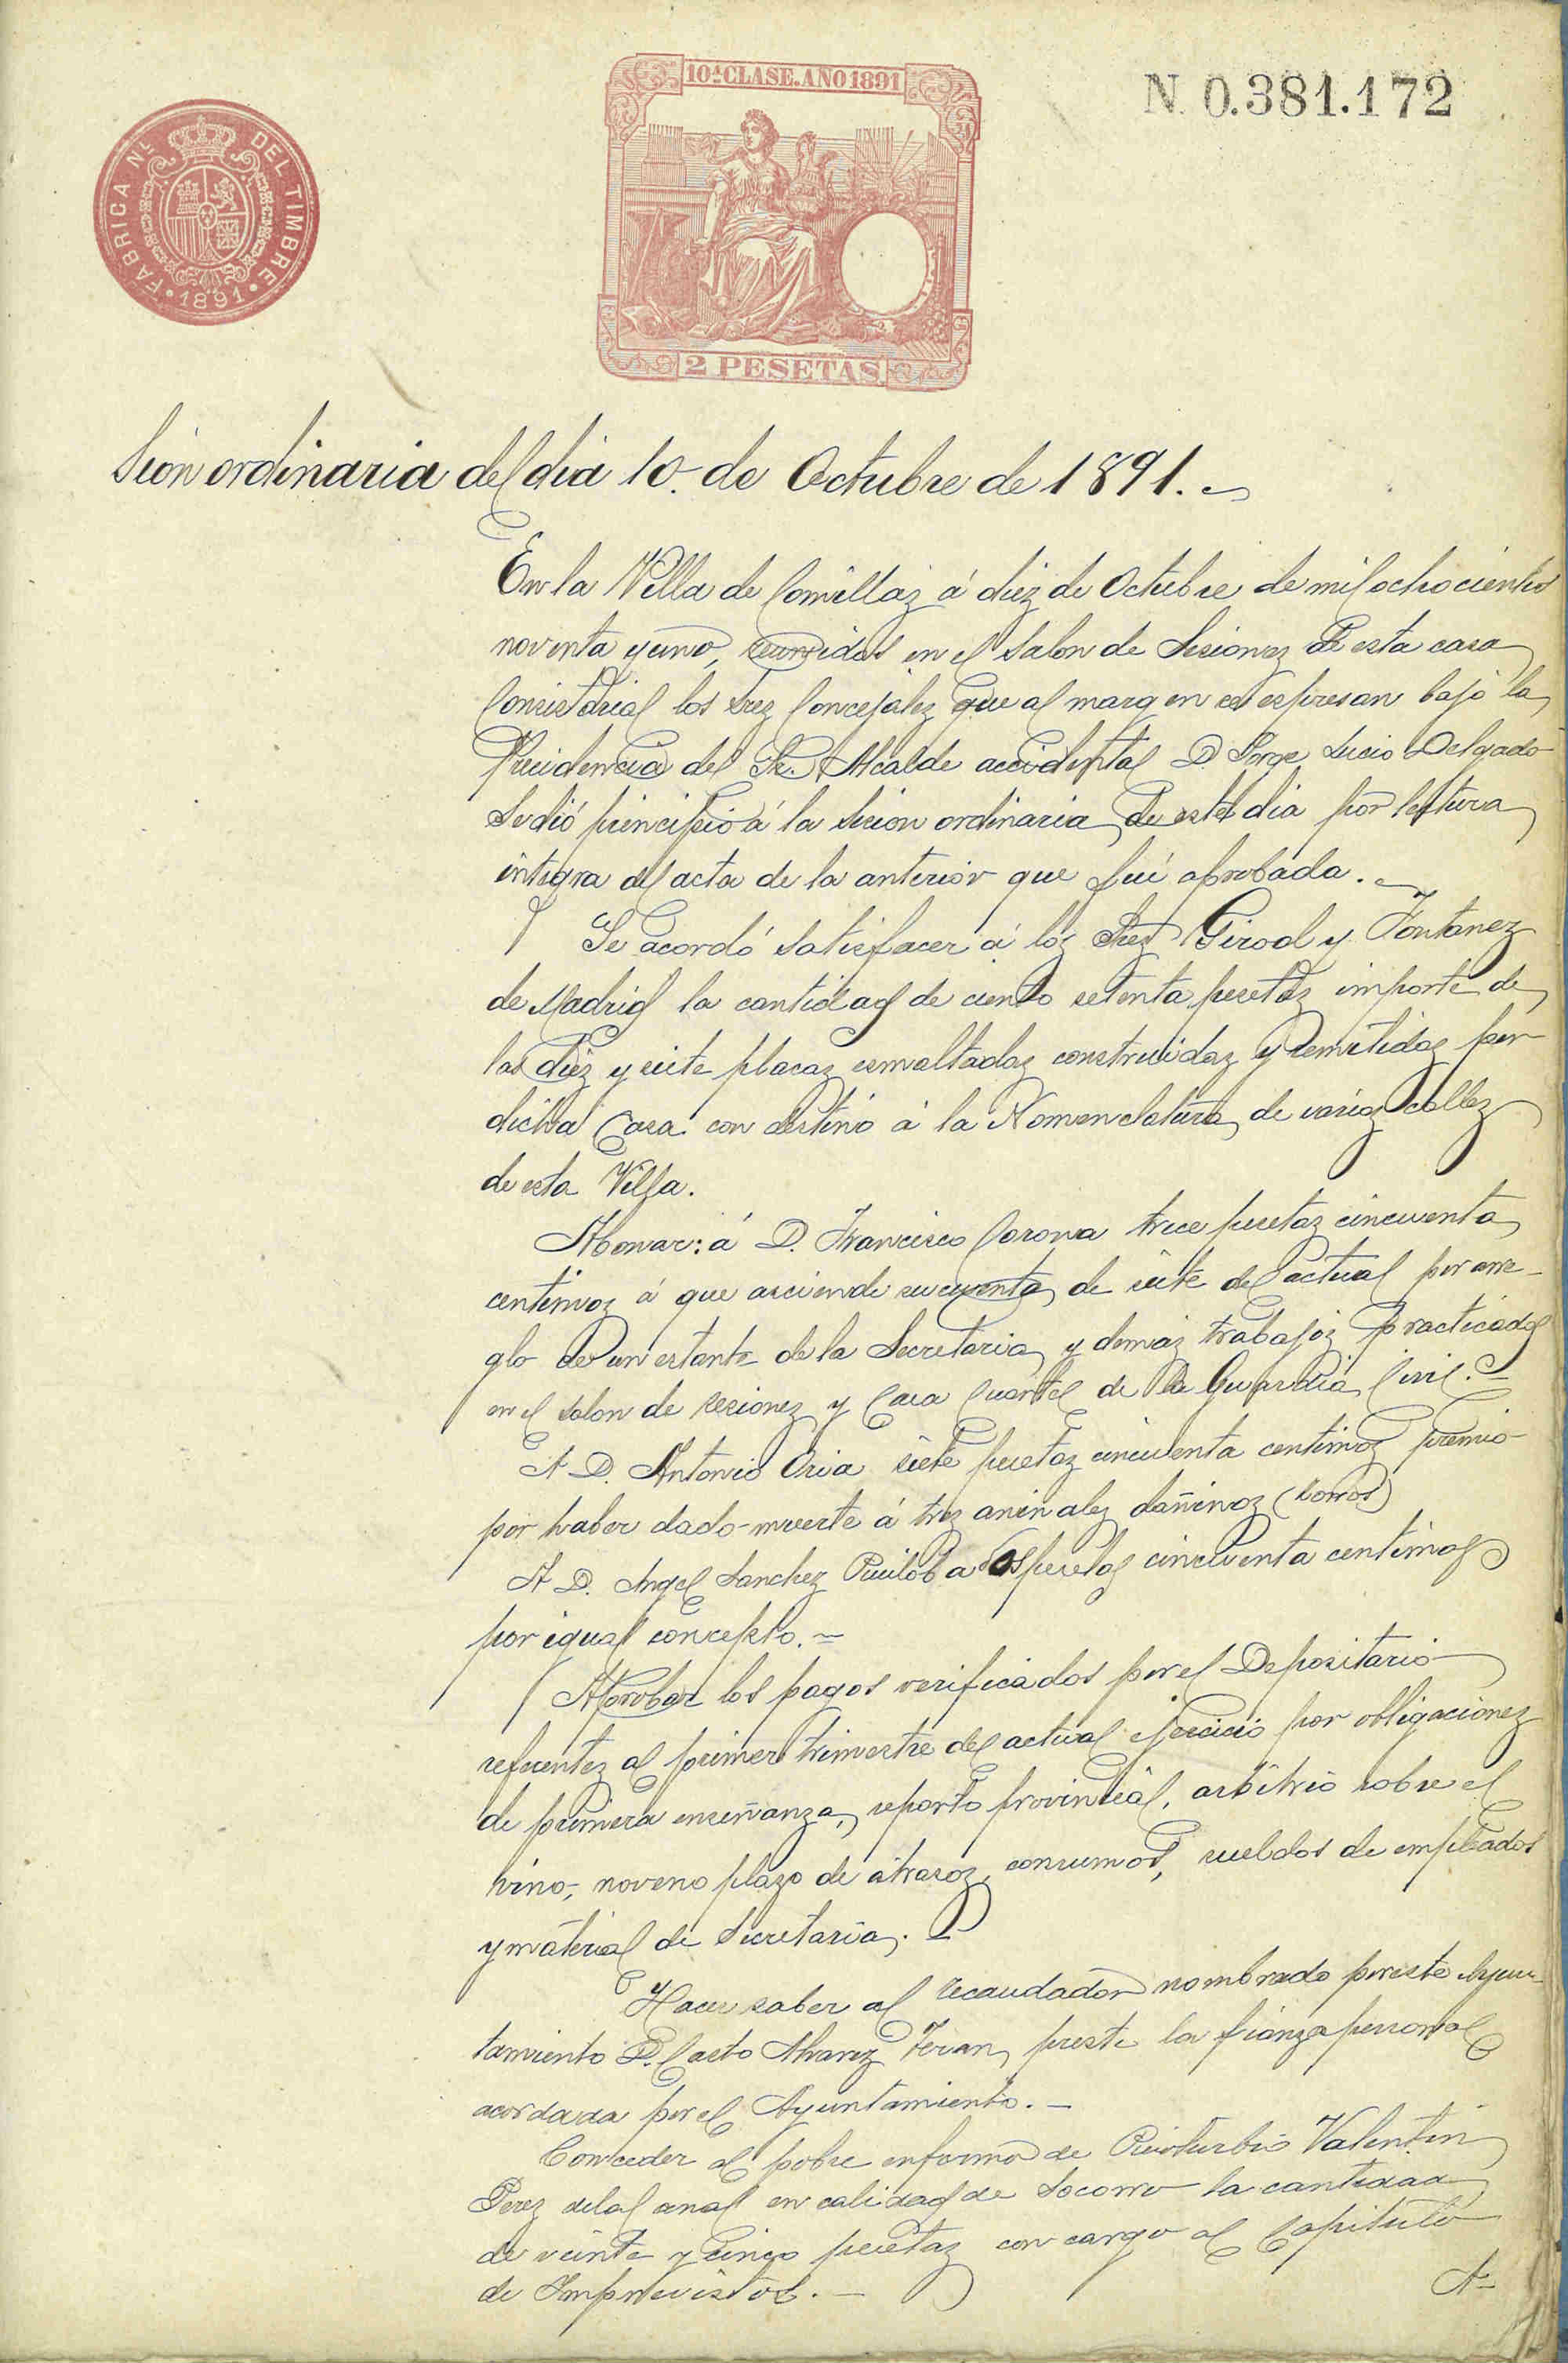 10ª CLASE. AÑO 1891
N. 0.381.172
FABRICA NL. DEL TIMBRE
1891
2 PESETAS
Sesión ordinaria del dia 10. de Octubre de 1891.
En la Villa de Comillas á diez de Octubre de mil ochocientos
noventa y uno, reunidos en el Salon de Sesiones de esta casa
Consistorial los Sres Concejales que al margen se espresan bajo la
Presidencia del Sr. Alcalde accidental D. Jorge Lucio Delgado
Se dió principio á la sesion ordinaria de este dia por lectura
integra del acta de la anterior que fué aprobada.
Se acordó satisfacer á los Sres Girod y Fontanez
de Madrid la cantidad de ciento setenta pesetas importe de
las diez y siete placas esmaltadas construidas y remitidas por
dicha Casa con destino á la Nomenclatura de varias calles
de esta Villa.
Abonar: á D. Francisco Corona trece pesetas cincuenta
centimos á que asciende su cuenta de siete del actual por arre-
glo de un estante de la Secretaria y demas trabajos practicados
en el salon de sesiones y Casa Cuartel de la Guardia Civil.
A D. Antonio Oria siete pesetas cincuenta centimos premio
por haber dado muerte á tres animales dañinos (zorros)
A D. Angel Sanchez Ruiloba dos pesetas cincuenta centimos
por igual concepto.
Aprobar los pagos verificados por el Depositario
referentes al primer trimestre del actual ejercicio por obligaciones
de primera enseñanza, reparto provincial, arbitrio sobre el
vino, noveno plazo de atrasos, consumos, sueldos de empleados
y material de Secretaria.
Hacer saber al recaudador nombrado por este Ayun-
tamiento D. Casto Alvarez Teran, preste la fianza personal
acordada por el Ayuntamiento.
Conceder al pobre enfermo de Rioturbio Valentin
Perez del Canal en calidad de socorro la cantidad
de veinte y cinco pesetas con cargo al Capitulo
de Imprevistos.
A-